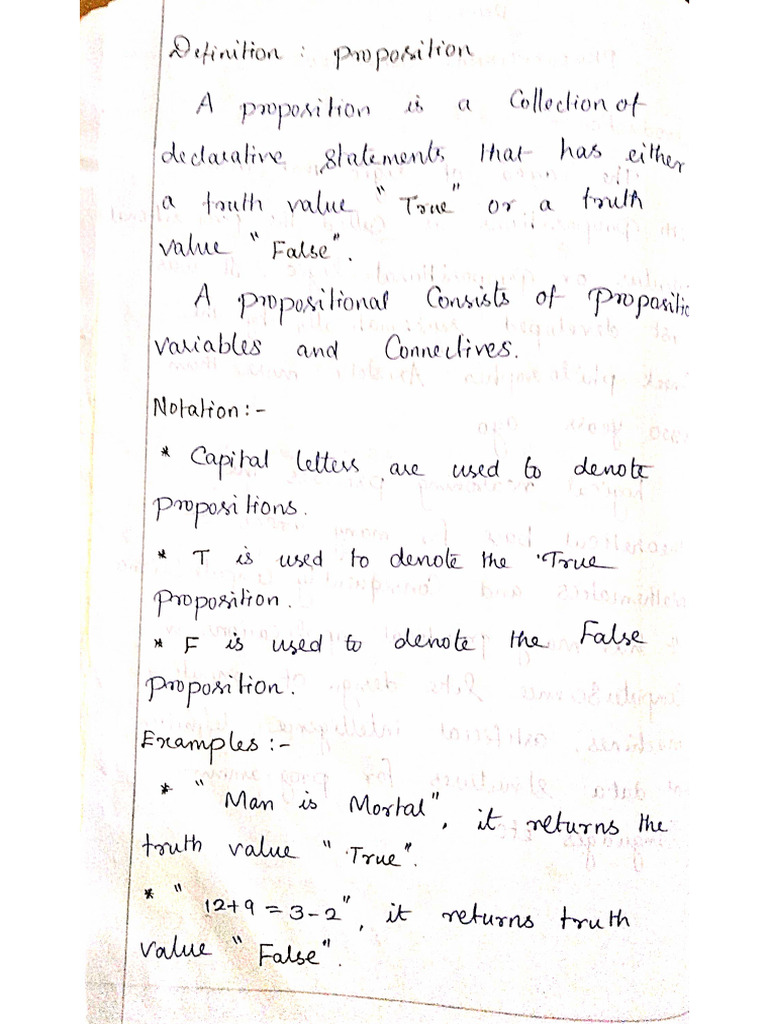 Definition : proposition
A proposition is a Collection of
declarative statements that has either
a truth value "True" or a truth
value "False".
A propositional Consists of propositio
variables and Connectives.
Notation :-
* Capital letters are used to denote
propositions.
* T is used to denote the True
proposition.
* F is used to denote the False
proposition.
Examples :-
* "Man is Mortal", it returns the
truth value "True".
* "12+9 = 3-2", it returns truth
value "False".